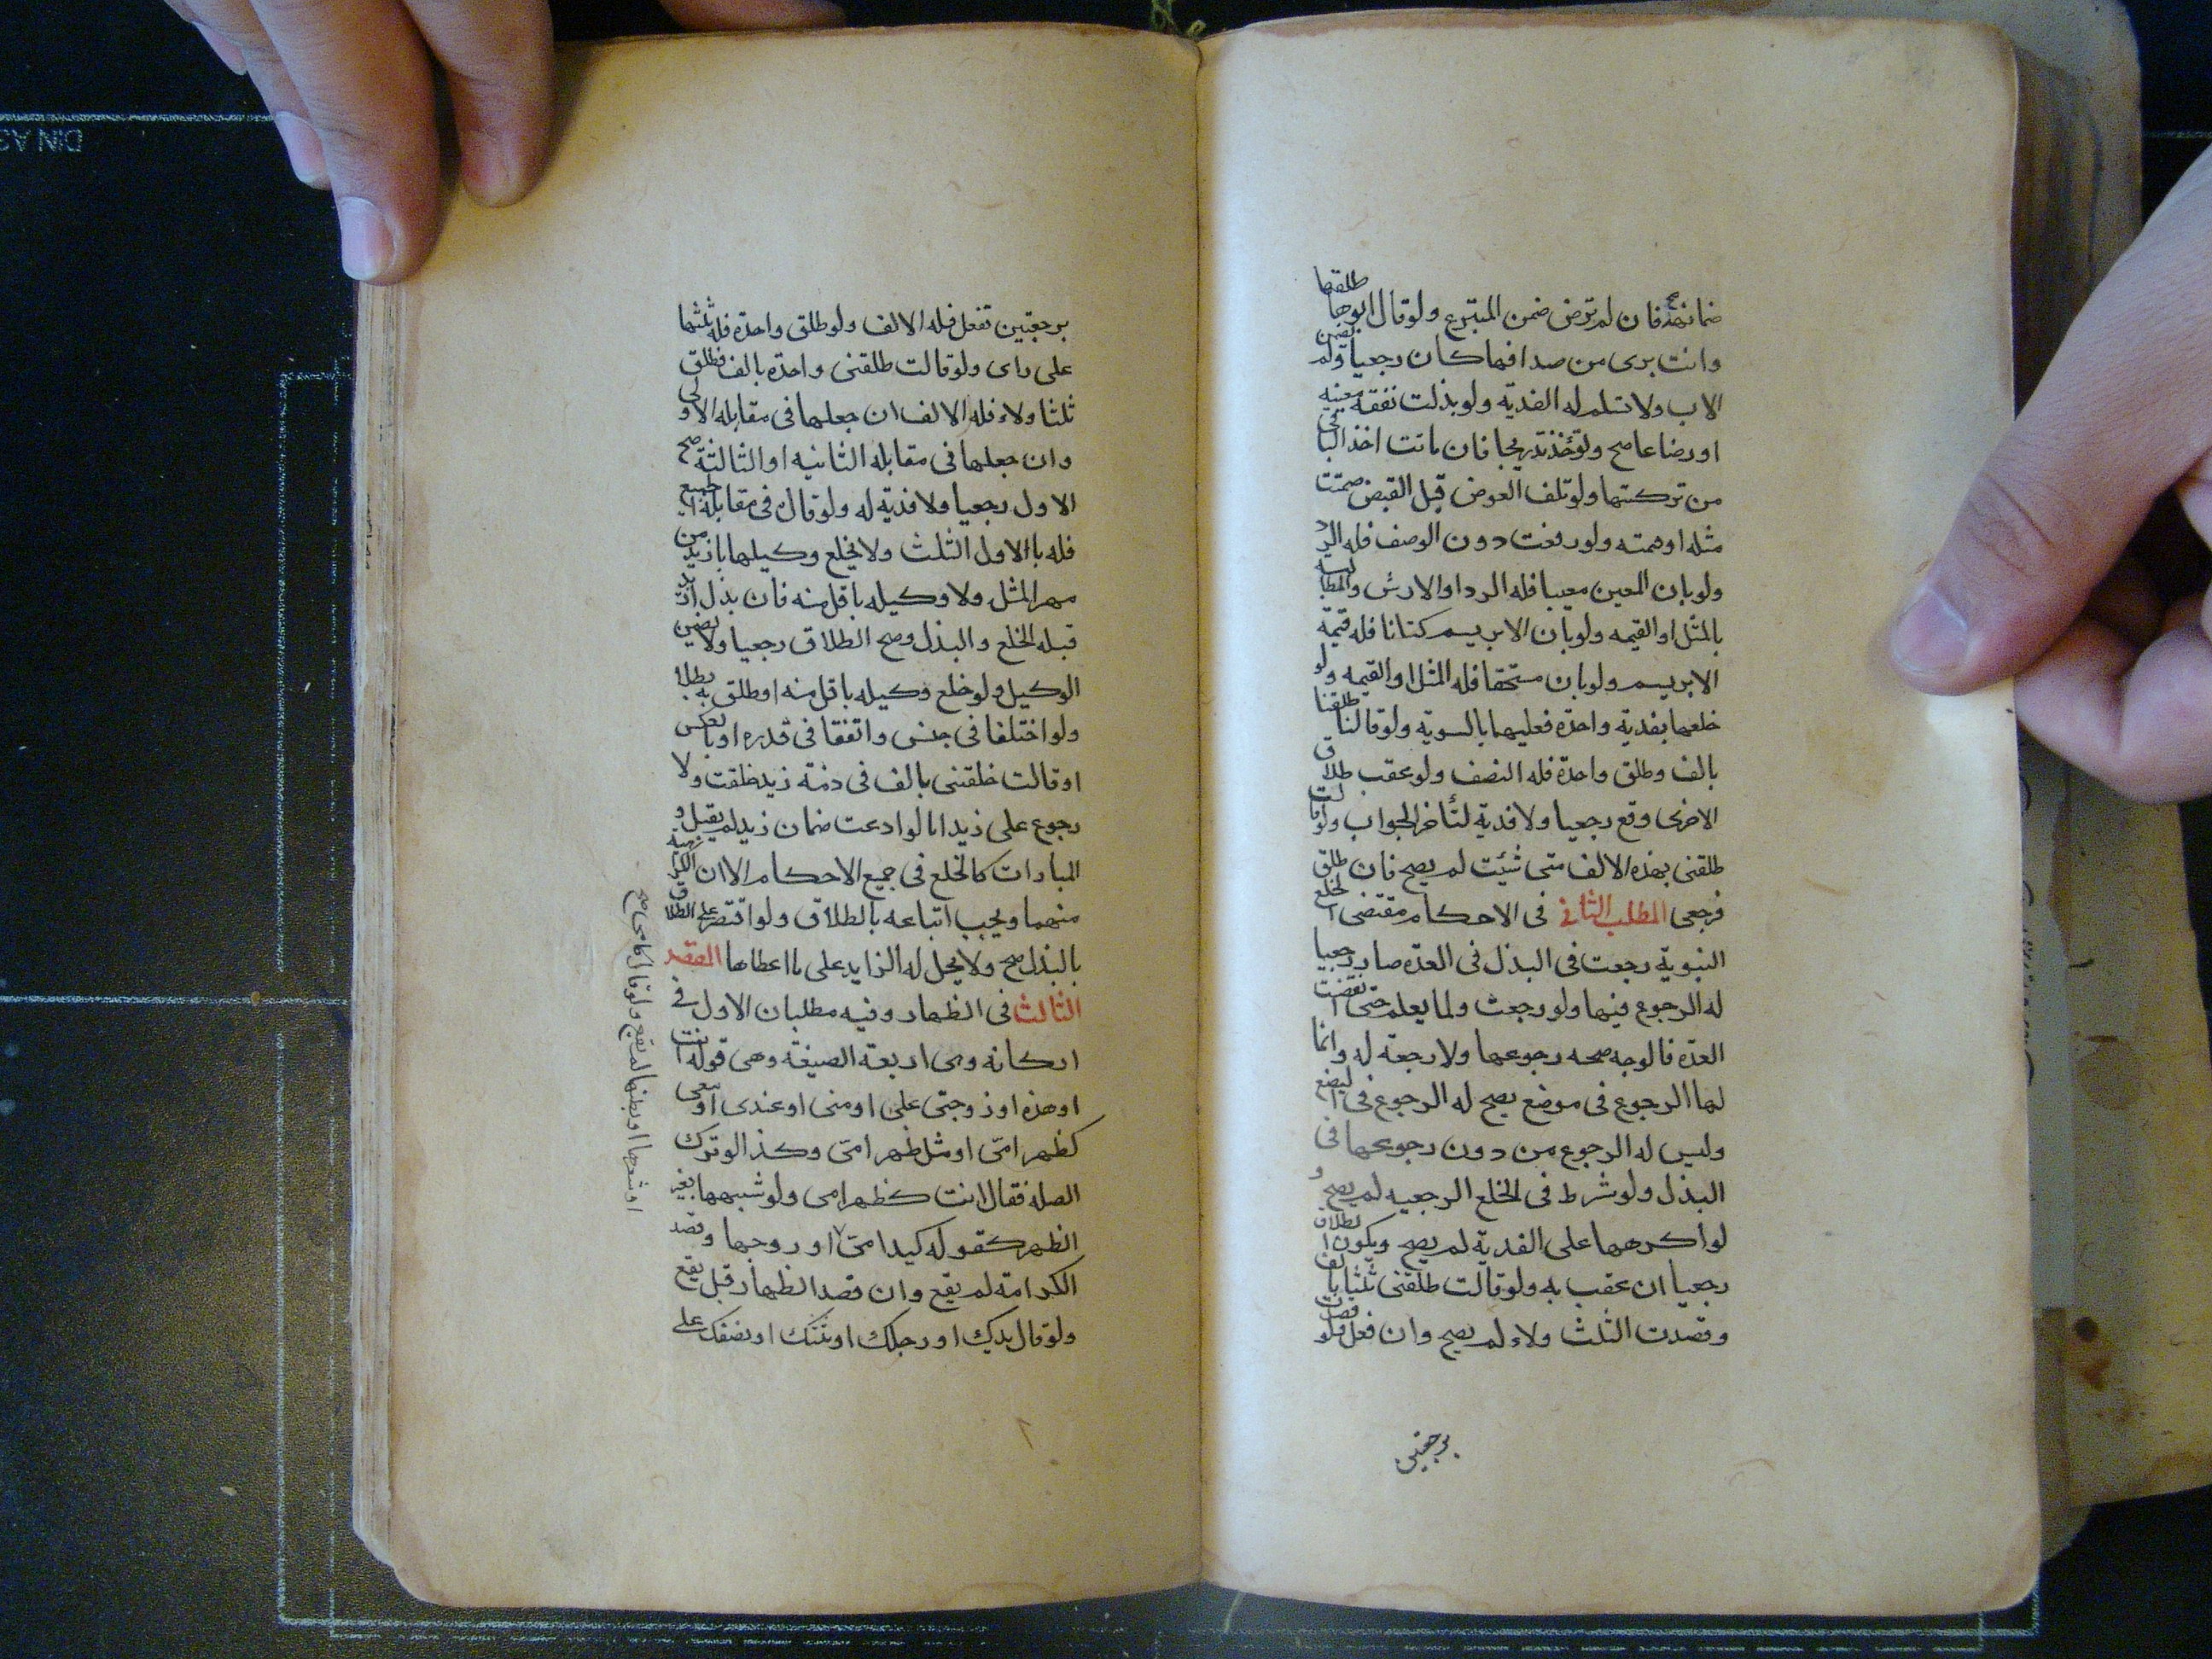 ضمانه صح فان لم ترض ضمن المتبرع ولو قال ابوها طلقها
وانت برى من صداقها كان رجعيا ولم يضمن
الاب ولا تسلم له الفدية ولو بذلت نفقة معينه
او رضاعا صح وتؤخذ تدريجا فان ماتت اخذ الباقى
من تركتها ولو تلف العوض قبل القبض ضمنت
مثله او قيمته ولو دفعت دون الوصف فله الرد
ولو بان المعين معيبا فله الرد او الارش والمطالبه
بالمثل او القيمه ولو بان الابريسم كتانا فله قيمة
الابريسم ولو بان مستحقا فله المثل او القيمه ولو
خلعها بفدية واحدة فعليهما بالسوية ولو قالتا طلقنا
بالف وطلق واحدة فله النصف ولو عقب طلاق
الاخرى وقع رجعيا ولا فدية لتأخر الجواب ولو قالت
طلقنى بهذه الالف متى شئت لم يصح فان طلق
فرجعى المطلب الثانى فى الاحكام مقتضى الخلع
البينونة رجعت فى البذل فى العدة صار رجعيا
له الرجوع فيها ولو رجعت ولما يعلم حتى انقضت
العدة فالوجه صحه رجوعها ولا رجعة له وانما
لها الرجوع فى موضع يصح له الرجوع فى البضع
وليس له الرجوع من دون رجوعها فى
البذل ولو شرط فى الخلع الرجعيه لم يصح و
لو اكرهها على الفدية لم يصح ويكون الطلاق
رجعيا ان عقب به ولو قالت طلقنى ثلثا بالف
وقصدت الثلث ولاء لم يصح وان فعل ولو قصدت
برجعتين
برجعتين تفعل فله الالف ولو طلق واحدة فله ثلثها
على راى ولو قالت طلقنى واحدة بالف فطلق
ثلثا ولاء فله الالف ان جعلها فى مقابله الاولى
وان جعلها فى مقابله الثانيه او الثالثة صح
الاول رجعيا ولا فدية له ولو قال فى مقابلة الجميع
فله بالاول الثلث ولا يخلع وكيلها بازيد من
مهر المثل ولا وكيله باقل منه فان بذل ازيد
قبله الخلع والبذل وصح الطلاق رجعيا ولا يضمن
الوكيل ولو خلع وكيله باقل منه او طلق به بطلا
ولو اختلفا فى جنس واتفقا فى قدره او بالعكس
او قالت خلعتنى بالف فى ذمة زيد خلفت ولا
رجوع على زيد اما لو ادعت ضمان زيد لم يقبل و
المبارات كالخلع فى جميع الاحكام الا ان الكراهية
منهما ويجب اتباعه بالطلاق ولو اقتصر على الطلاق
بالبذل صح ولا يحل له الزايد على ما اعطاها المقصد
الثالث فى الظهار وفيه مطلبان الاول فى
اركانه وهى اربعة الصيغة وهى قوله انت
او هذه او زوجتى على او منى او عندى او معى
كظهر امى او مثل ظهر امى وكذا لو ترك
الصله فقال انت كظهر امى ولو شبهها بغير
الظهر كقوله كيد امى او روحها وقصد
الكرامة لم يقع وان قصد الظهار قبل يقع
ولو قال يدك او رجلك او ثلثك او نصفك على
او شعرها او بطنها لم يقع ولو قال كامى صح